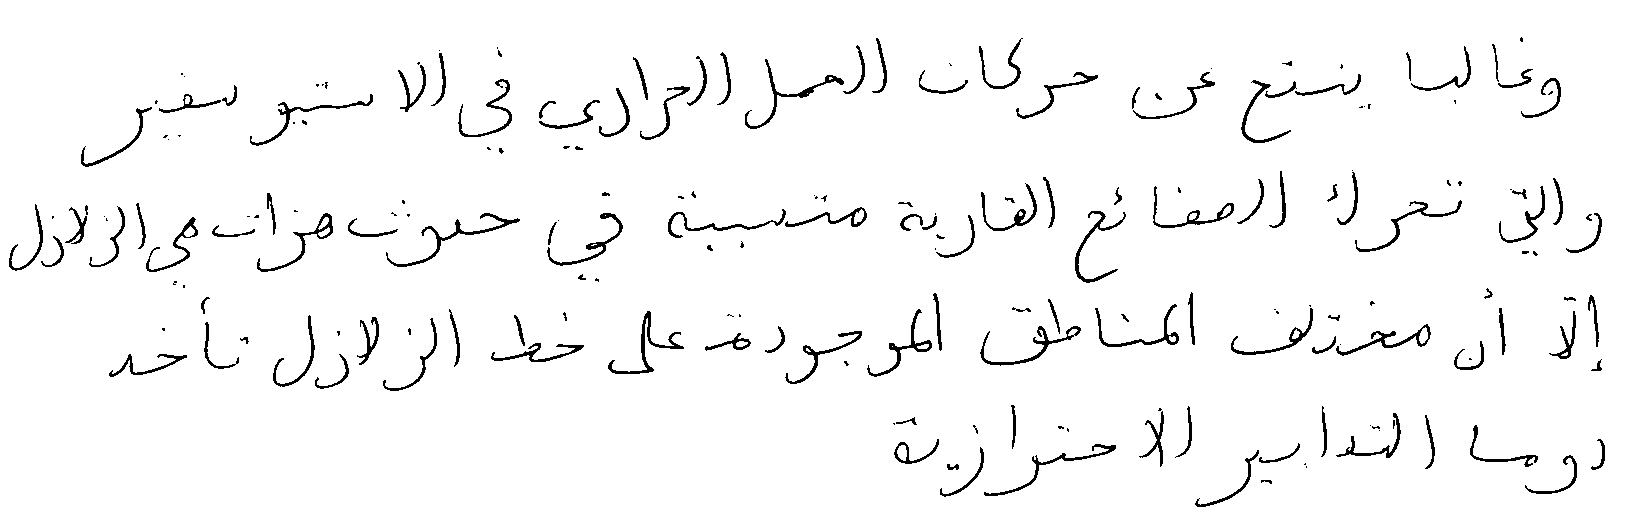 وغالبا ينتج عن حركات الحمل الحراري في الاستيوسفير
والتي تحرك الصفائح القارية متسببة في حدوث هزات هي الزلازل
إلّا أن مختلف المناطق الموجودة على خط الزلازل تأخد
دوما التدابير الاحترازية